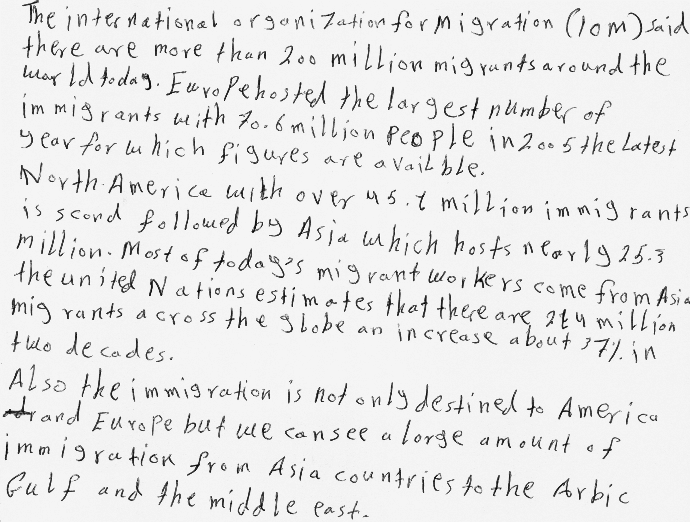 The international organization for Migration (IOM) said
there are more than 200 million migrants around the
world today. Europe hosted the largest number of
immigrants with 70.6 million People in 2005 the Latest
year for which figures are availble.
North America with over 45.1 million immigrants
is scond followed by Asia which hosts nearly 25.3
million. Most of today's migrant workers come from Asia
the united Nations estimates that there are 214 million
migrants across the globe an increase about 37% in
two decades.
Also the immigration is not only destined to America
and Europe but we can see a large amount of
immigration from Asia countries to the Arbic
Gulf and the middle east.